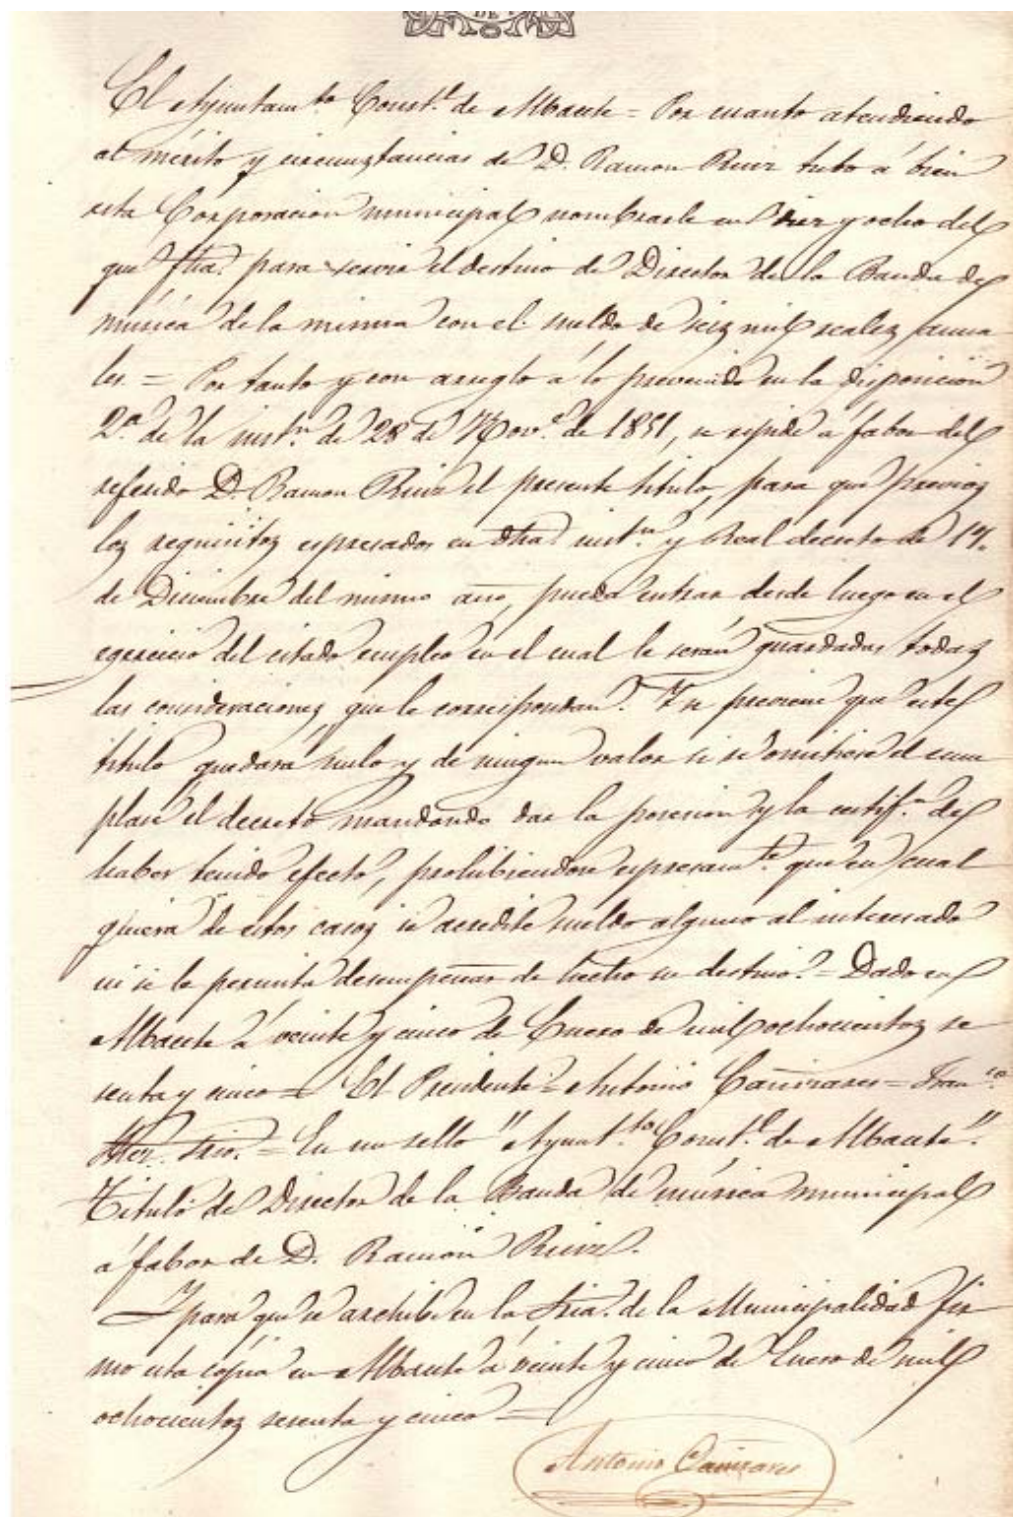 DE
El Ayuntamto Constl de Albacete = Por cuanto atendiendo
al mérito y circunstancias de D. Ramon Ruiz tubo á bien
esta Corporacion municipal nombrarle en diez y ocho del
que fha. para servir el destino de Director de la Banda de
música de la misma con el sueldo de seis mil reales anua
les. = Por tanto y con arreglo á lo prevenido en la disposicion
2.a de la instn de 28 de Nove de 1851, se espide á fabor del
referido D. Ramon Ruiz el presente titulo, para que previos
los requisitos espresados en dha. instn y Real decreto de
de Diciembre del mismo año, pueda entrar desde luego en el
egercicio del citado empleo en el cual le serán guardadas todas
las consideraciones que le correspondan. Y se previene que este
titulo quedará nulo y de ningun valor si se omitiere el cum
plase el decreto mandando dar la posesion y la certifn de
haber tenido efecto, prohibiendose espresamte que en cual
quiera de estos casos se acredite sueldo alguno al interesado
ni se le permita desempeñar de su destino. = Dado en
Albacete á veinte y cinco de Enero de mil ochocientos se
senta y cinco = El Presidente = Antonio Cañizares = Franco
Srio. = En un sello "Ayuntto Constl de Albacete".
Titulo de Director de la Banda de música municipal
á fabor de D. Ramón Ruiz.
Y para que se archibe en la Sria. de la Municipalidad fir
mo esta cópia en Albacete á veinte y cinco de Enero de mil
ochocientos sesenta y cinco =
Antonio Cañizares